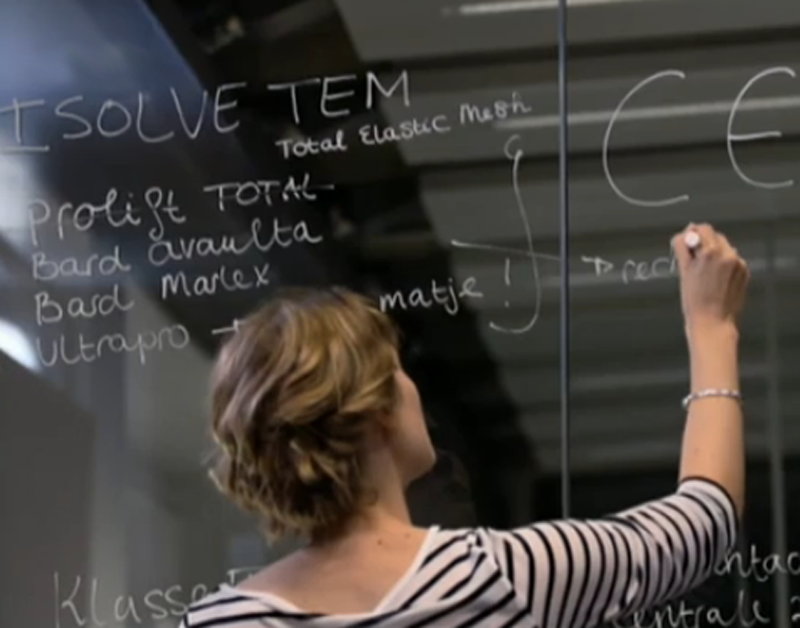 ISOLVE TEM
Total Elastic Mesh
Prolift TOTAL
Bard avaulta
Bard Marlex
Ultrapro → matje!
CE
→ rec
Klasse
ntac
entrale 2